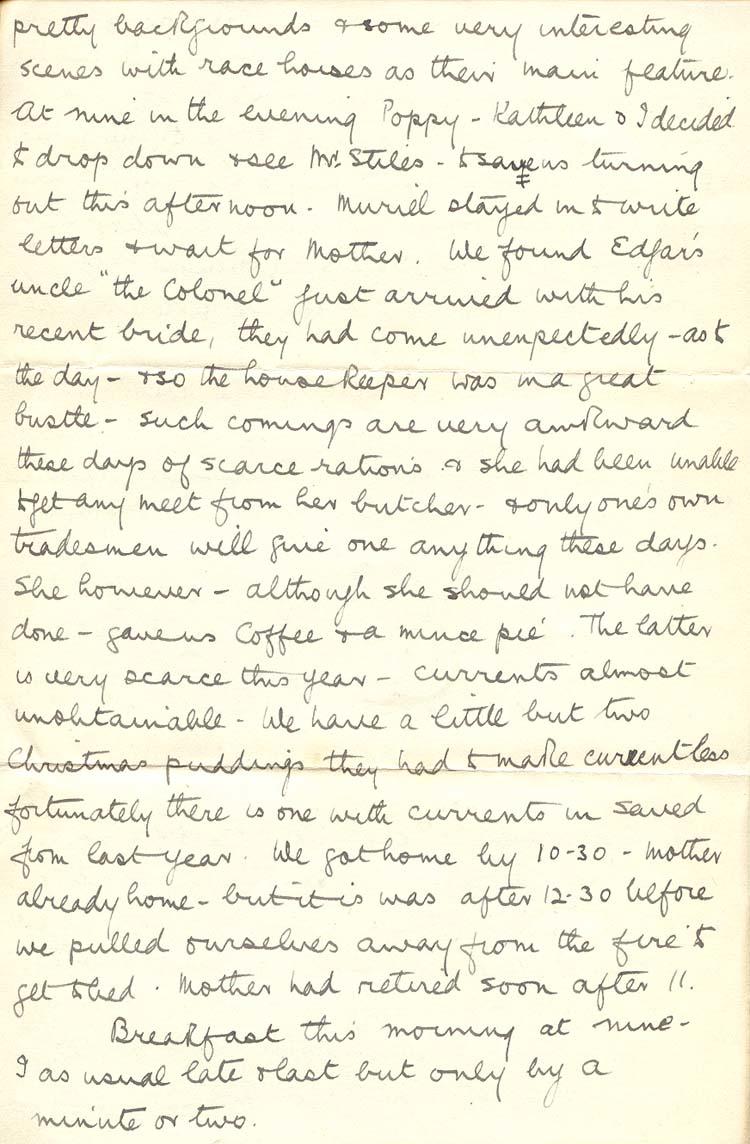 pretty backgrounds & some very interesting
scenes with race horses as their main feature.
At nine in the evening Poppy - Kathleen & I decided
to drop down & see Mr. Stiles - to save us turning
out this afternoon. Muriel stayed in to write
letters & wait for Mother. We found Edgar's
uncle "the Colonel" just arrived with his
recent bride, they had come unexpectedly - as to
the day - & so the house keeper was in a great
bustle - such comings are very awkward
these days of scarce rations & she had been unable
to get any meet from her butcher - & only one's own
tradesmen will give one anything these days.
She however - although she should not have
done - gave us Coffee & a mince pie. The latter
is very scarce this year - currents almost
unobtainable - We have a little but two
Christmas puddings they had to make currentless
fortunately there is one with currents in saved
from last year. We got home by 10-30 - Mother
already home - but it is was after 12-30 before
we pulled ourselves away from the fire to
get to bed. Mother had retired soon after 11.
Breakfast this morning at nine -
I as usual late & last but only by a
minute or two.